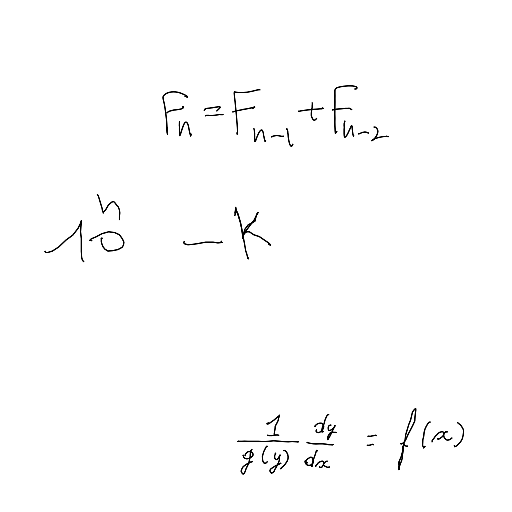 Fₙ = Fₙ₋₁ + Fₙ₋₂
10ⁿ - K
1/g(y) dy/dx = f(x)